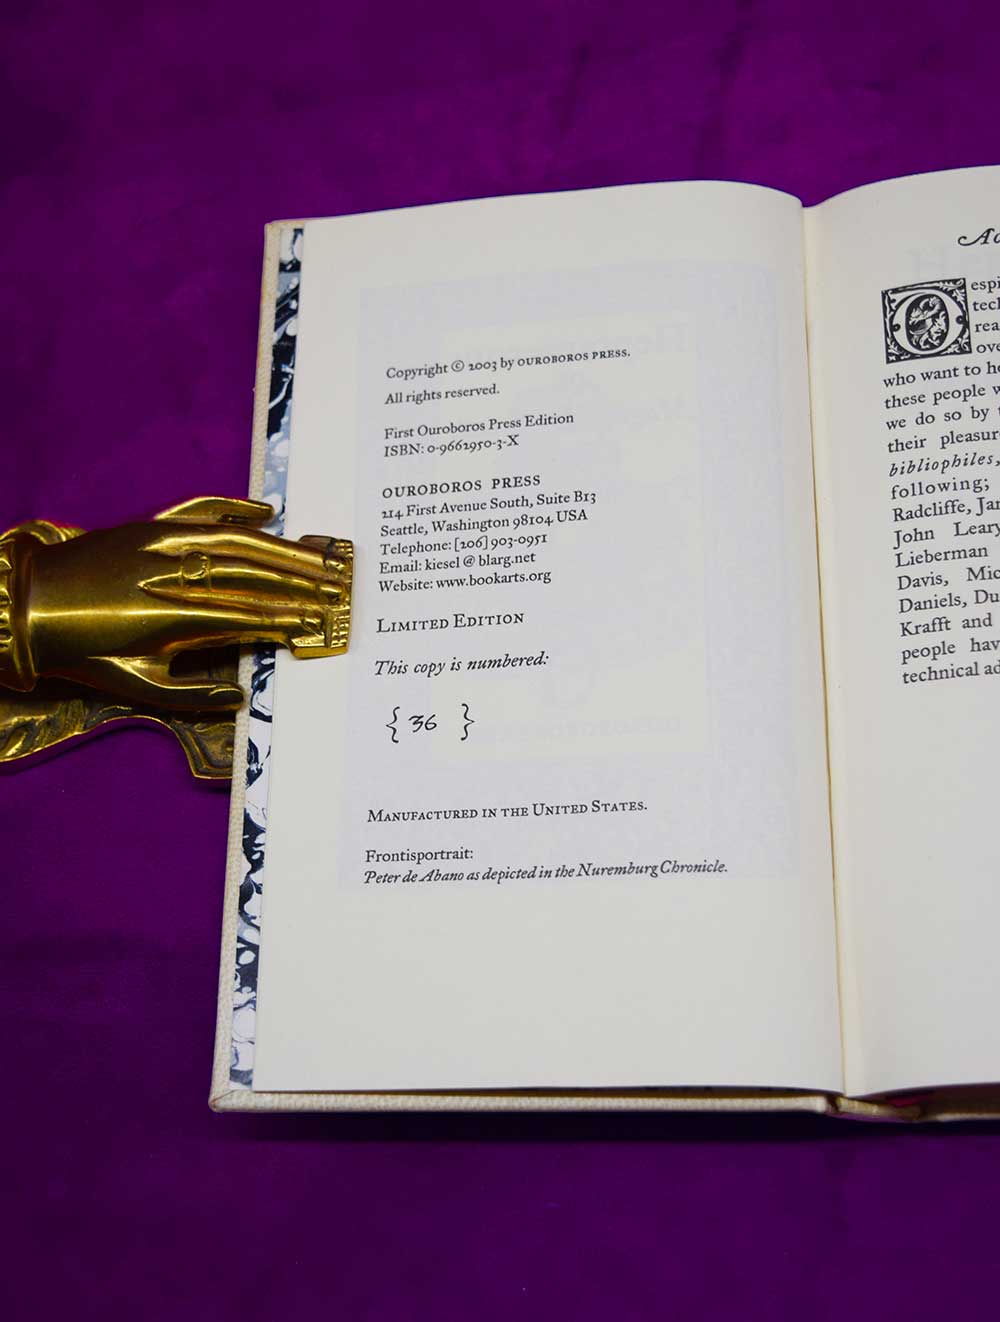 Copyright © 2003 by OUROBOROS PRESS.
All rights reserved.
First Ouroboros Press Edition
ISBN: 0-9662950-3-X
OUROBOROS PRESS
214 First Avenue South, Suite B13
Seattle, Washington 98104 USA
Telephone: [206] 903-0951
Email: kiesel @ blarg.net
Website: www.bookarts.org
LIMITED EDITION
This copy is numbered:
{ 36 }
MANUFACTURED IN THE UNITED STATES.
Frontisportrait:
Peter de Abano as depicted in the Nuremburg Chronicle.
who want to
these people
we do so by
their pleasure
bibliophiles,
following;
Radcliffe,
John Leary
Lieberman
Davis,
Daniels,
Krafft and
people
technical